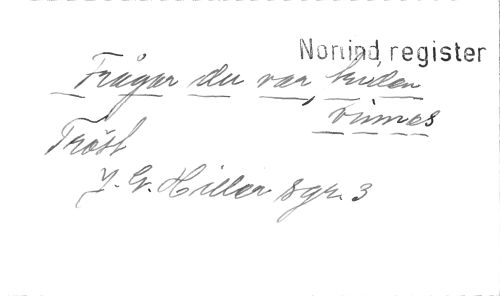 Nomind register
Frågar du var friden
vinnes
Tröst
J. G. Hiller sgr. 3